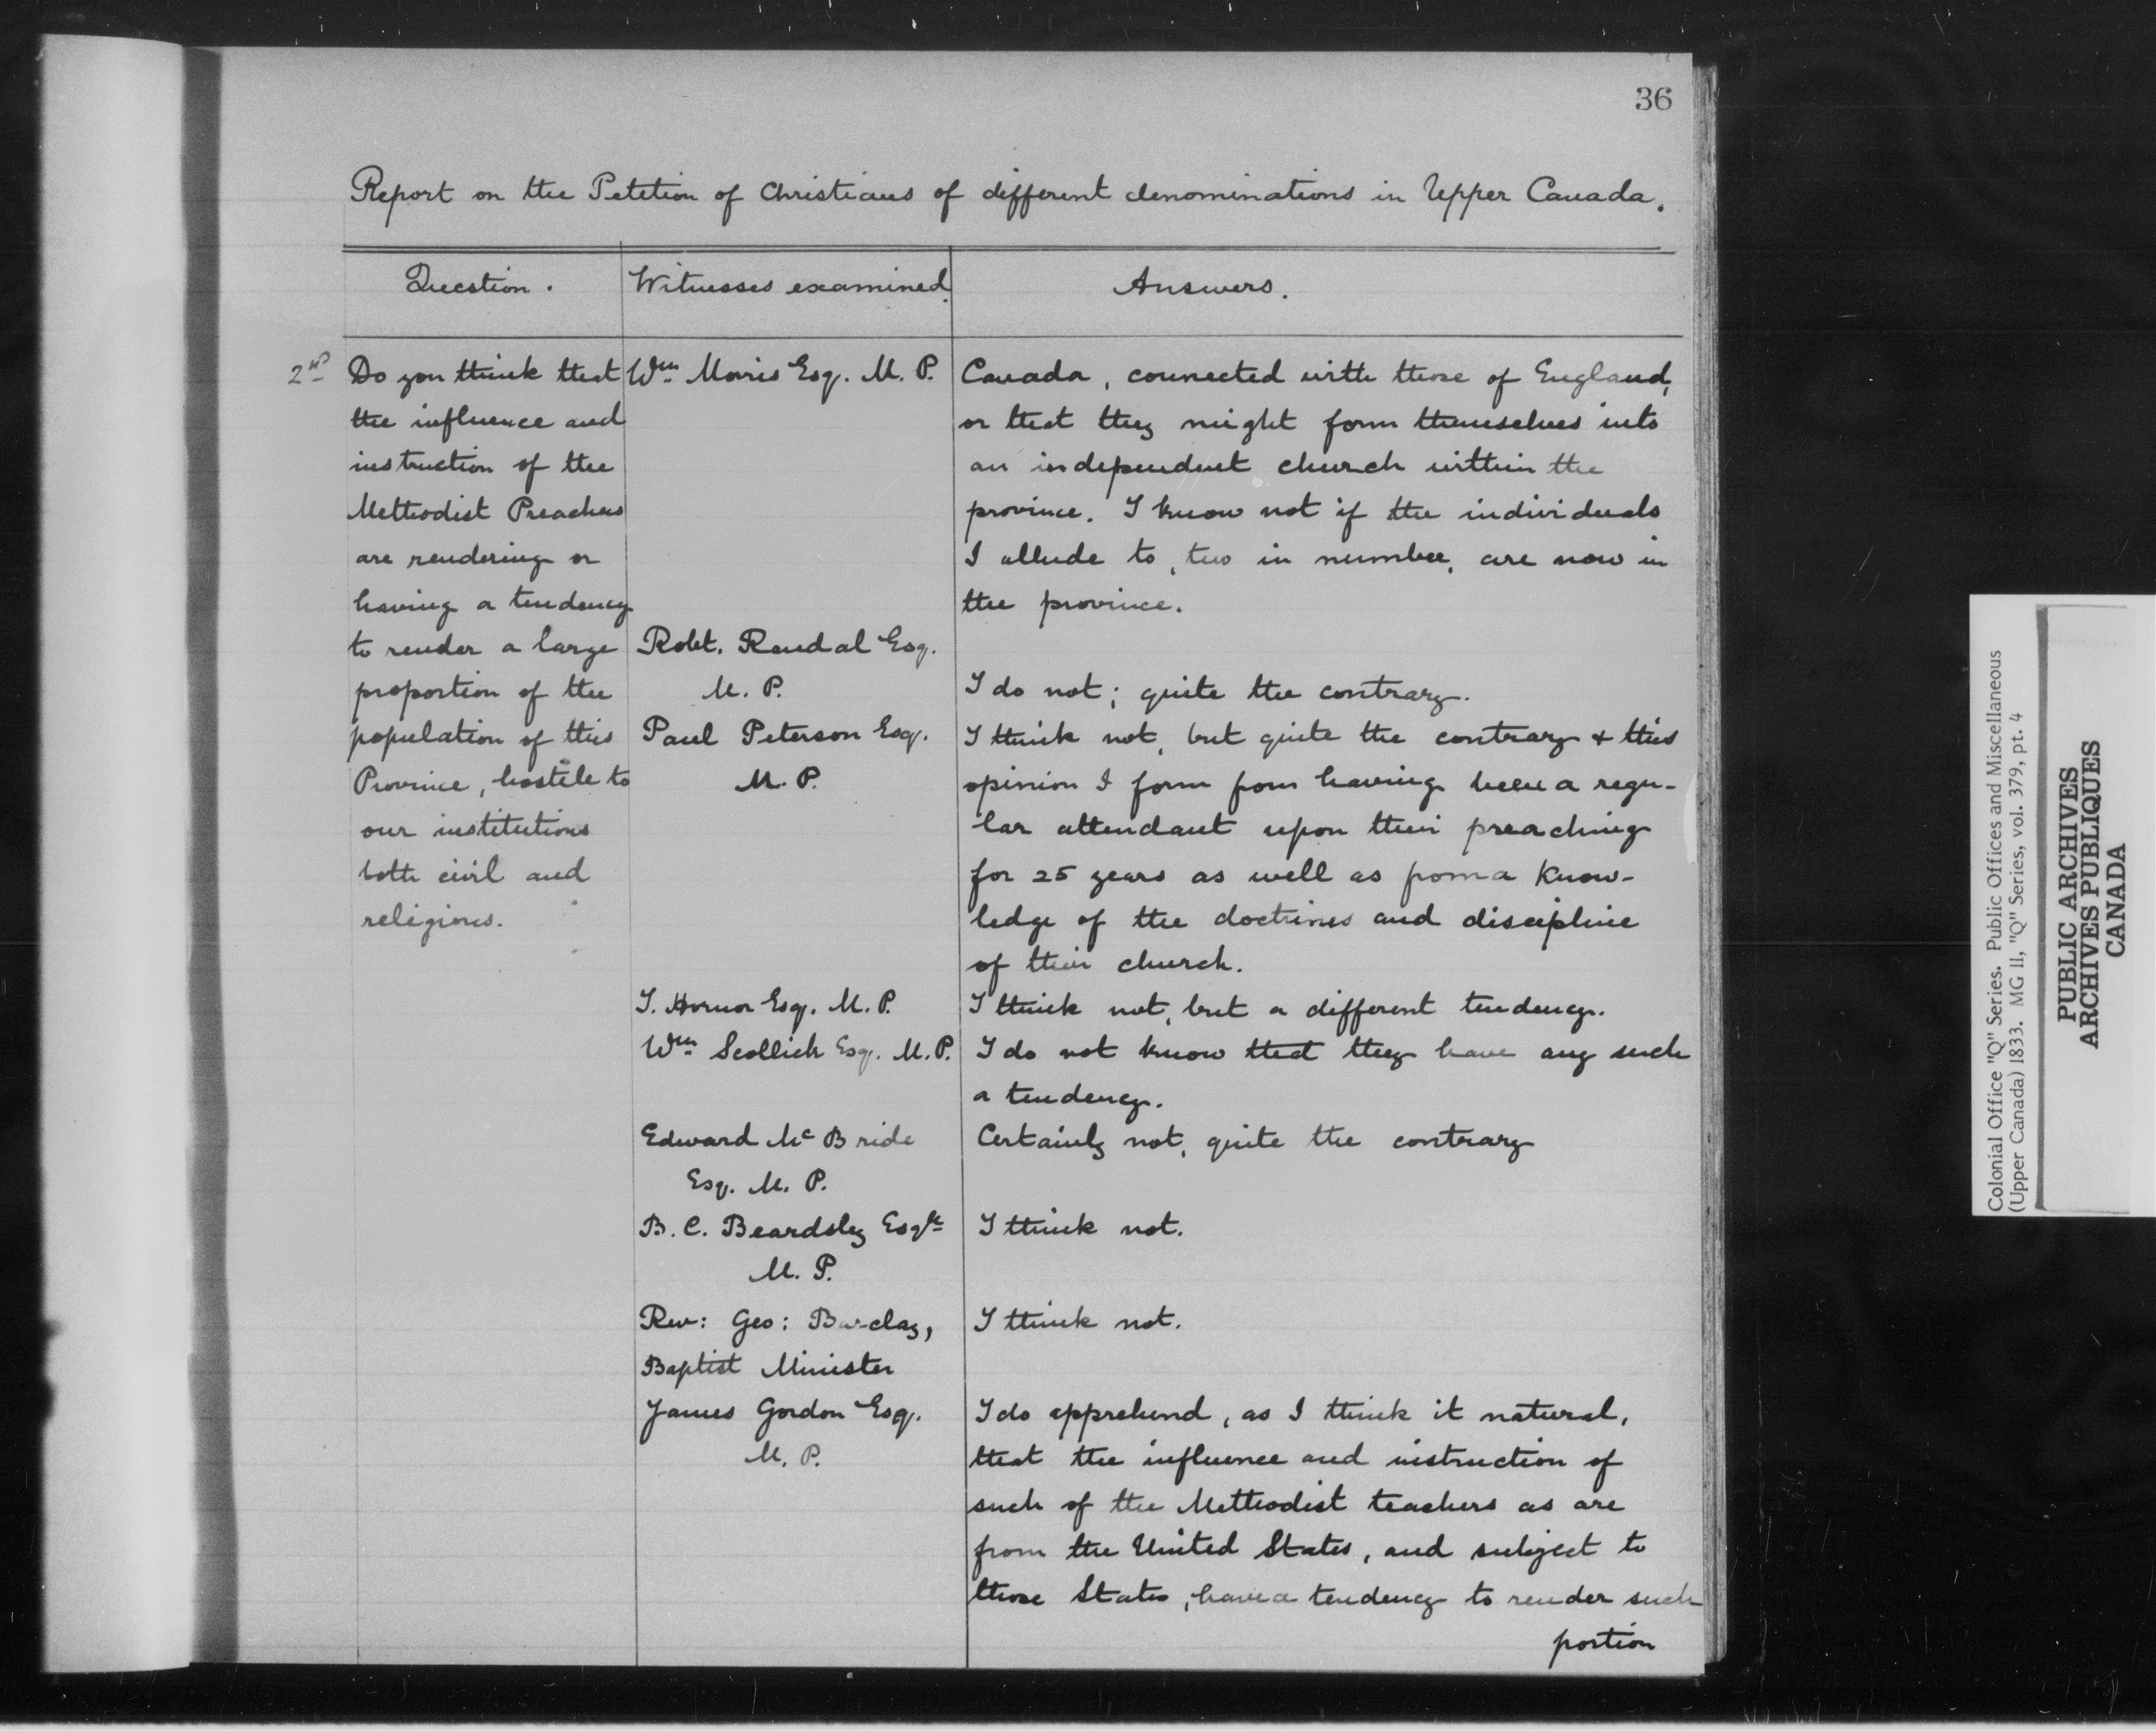 36
Report on the Petition of Christians of different denominations in Upper Canada.
Question.
Witnesses examined.
Answers.
2nd
Do you think that
the influence and
instruction of the
Methodist Preachers
are rendering or
having a tendency
to render a large
proportion of the
population of this
Province, hostile to
our institutions
both civil and
religious.
Wm Morris Esq. M. P.
Canada, connected with those of England,
or that they might form themselves into
an independent church within the
province. I know not if the individuals
I allude to, two in number, are now in
the province.
Robt. Randal Esq.
M. P.
I do not; quite the contrary.
Paul Peterson Esq.
M. P.
I think not, but quite the contrary & this
opinion I form from having been a regu-
lar attendant upon their preaching
for 25 years as well as from a Know-
ledge of the doctrines and discipline
of their church.
T. Hornor Esq. M. P.
I think not, but a different tendency.
Wm Scollick Esq. M. P.
I do not know that they have any such
a tendency.
Edward Mc Bride
Esq. M. P.
Certainly not, quite the contrary
B. C. Beardsley Esqre
M. P.
I think not.
Rev: Geo: Barclay,
Baptist Minister
I think not.
James Gordon Esq.
M. P.
I do apprehend, as I think it natural,
that the influence and instruction of
such of the Methodist teachers as are
from the United States, and subject to
those States, have a tendency to render such
portion
Colonial Office "Q" Series. Public Offices and Miscellaneous
(Upper Canada) 1833. MG 11, "Q" Series, vol. 379, pt. 4
PUBLIC ARCHIVES
ARCHIVES PUBLIQUES
CANADA